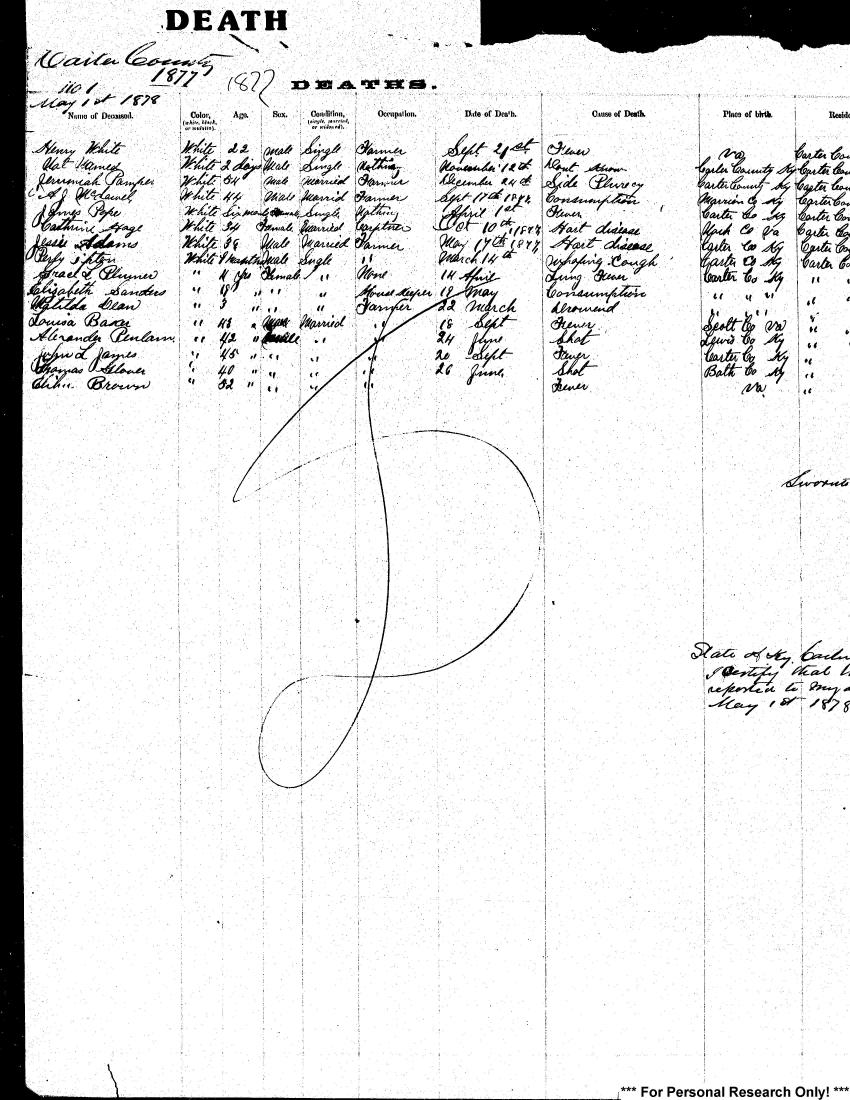 DEATH
Carter County
1877
1877
DEATHS.
No 1
May 1st 1878
Name of Deceased. Color, (white, black, or mulatto). Age. Sex. Condition, (single, married, or widowed). Occupation. Date of Death. Cause of Death. Place of birth. Reside
Henry White White 22 Male Single Farmer Sept 21st Fever Va Carter Cou
Not Named White 2 days Male Single Nothing November 12th Dont Know Carter County Ky Carter Cou
Jerremiah White 34 Male Married Farmer December 24th Side Plurecy Carter County Ky Carter Cou
A J McDowel White 44 Male Married Farmer Sept 17th 1877 Consumption Marrion Co Ky Carter Cou
James Pope White Six months Single Nothing April 1st Fever Carter Co Ky Carter Con
Cathrine White 34 Female Married Oct 10th 1877 Hart disease Co Va Carter Co
Jessee Adams White 38 Male Married Farmer May 17th 1877 Hart disease Carter Co Ky Carter Co
Perly Tipton White Male Single " March 14th Whoping Cough Carter Co Ky Carter Co
Israel L Plumer " 11 yrs Female " None 14 April Lung Fever Carter Co Ky "
Elizabeth Sanders " 18 " " " House Keeper 18 May Consumption " " " "
Matilda Dean " 3 " " " Farmer 22 March drownd " " " "
Louisa Baker " 43 " Married " 18 Sept Fever Scott Co Va "
Alexander " 42 " Male " " 24 June Shot Lewis Co Ky "
John L James " 45 " " " " 20 Sept Fever Carter Co Ky "
Thomas Glover " 40 " " " " 26 June Shot Bath Co Ky "
Brown " 32 " " " " Fever Va "
Swornto
State of Ky. Carter
I Certify that
reported to my
May 1st 1878
*** For Personal Research Only! ***